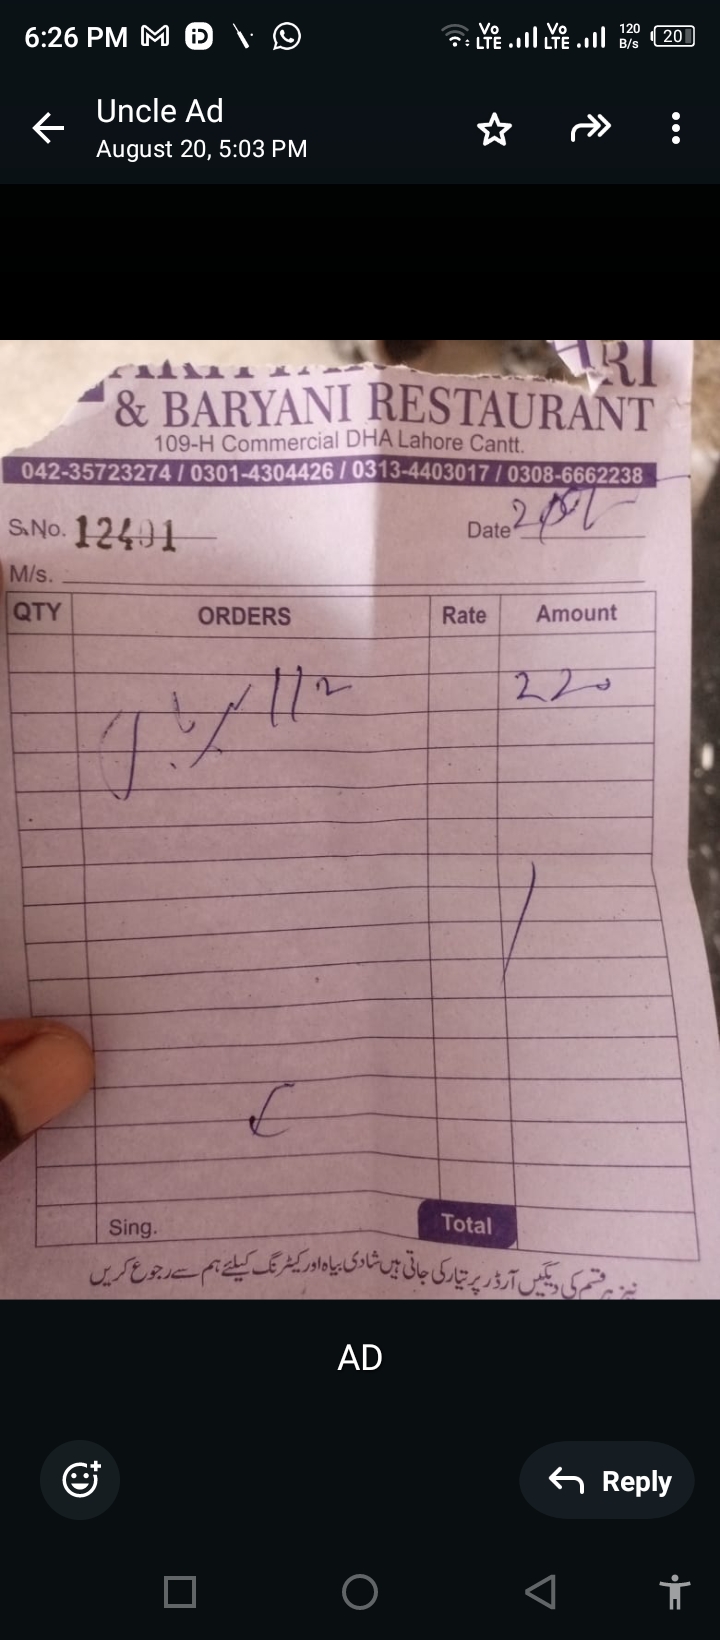 6:26 PM
Vo LTE Vo LTE 120 B/s 20
Uncle Ad
August 20, 5:03 PM
& BARYANI RESTAURANT
109-H Commercial DHA Lahore Cantt.
042-35723274 / 0301-4304426 / 0313-4403017 / 0308-6662238
S.No. 12401
Date
M/s.
QTY ORDERS Rate Amount
220
Sing. Total
نیز ہر قسم کی دیگیں آرڈر پر تیار کی جاتی ہیں شادی بیاہ اور کیٹرنگ کیلئے ہم سے رجوع کریں
AD
Reply